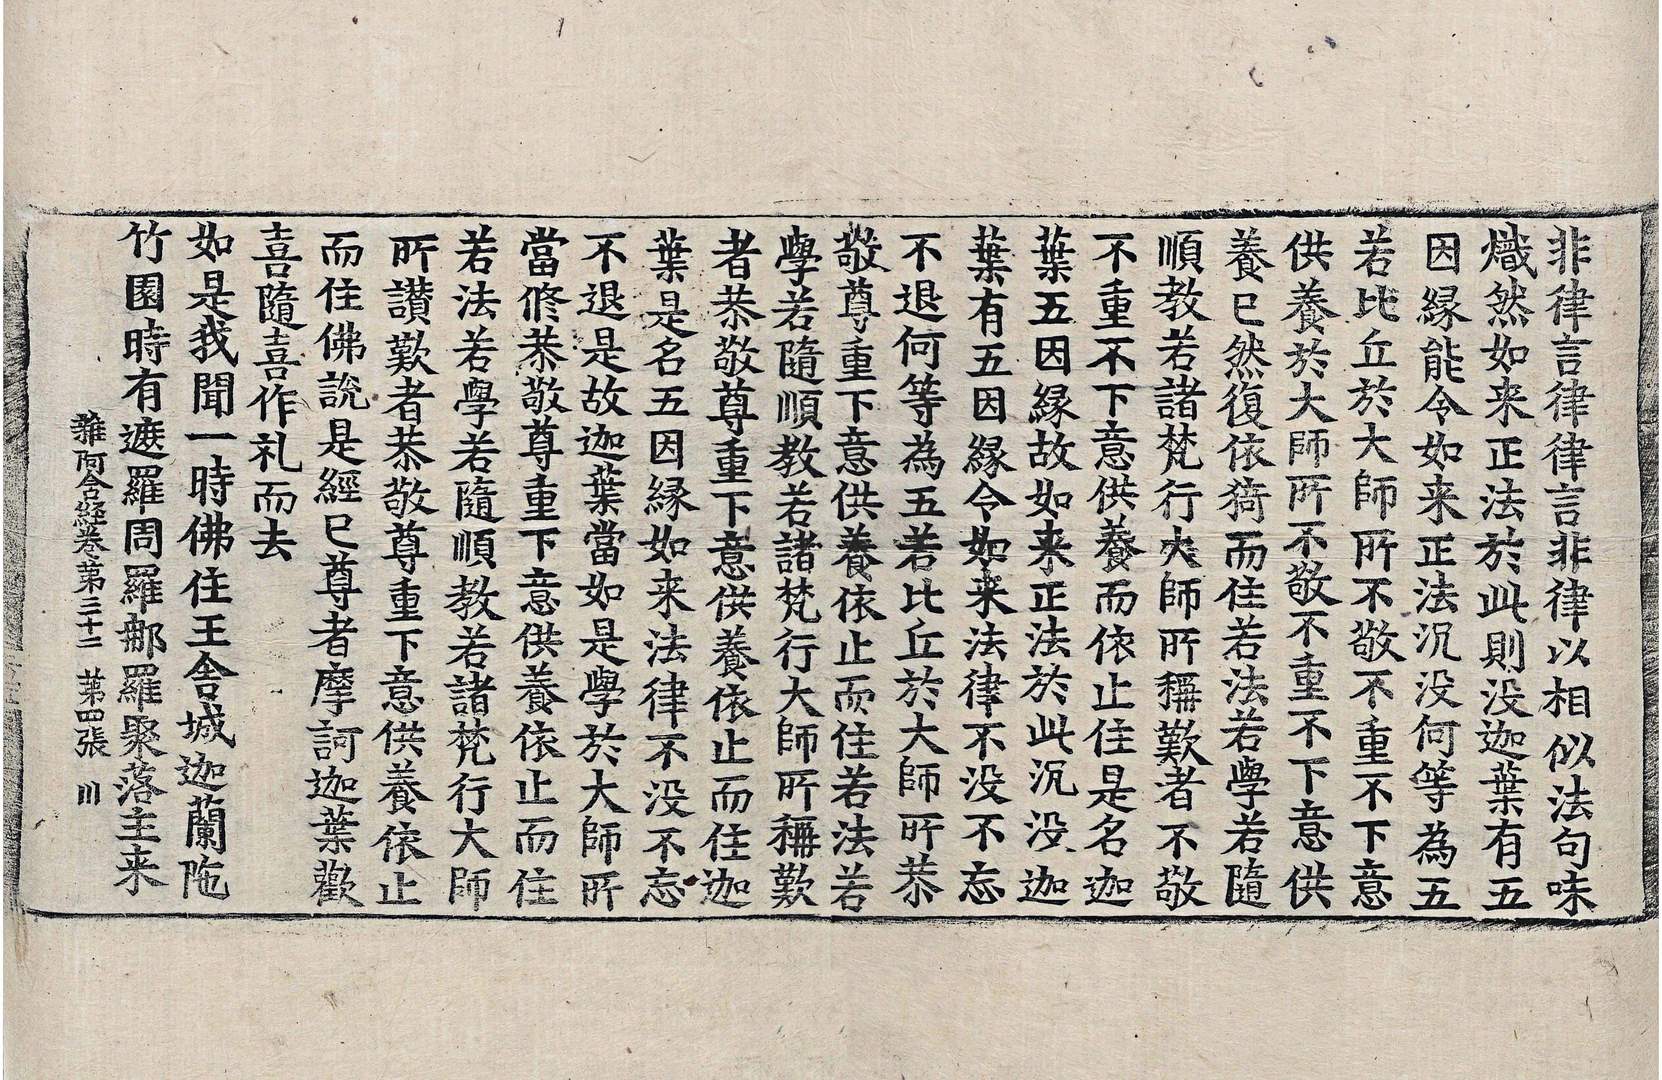 非律言律律言非律以相似法句味
熾然如来正法於此則没迦葉有五
因縁能令如来正法沉没何等為五
若比丘於大師所不敬不重不下意
供養於大師所不敬不重不下意供
養已然復依猗而住若法若學若隨
順教若諸梵行大師所稱歎者不敬
不重不下意供養而依止住是名迦
葉五因縁故如来正法於此沉没迦
葉有五因縁令如来法律不没不忘
不退何等為五若比丘於大師所恭
敬尊重下意供養依止而住若法若
學若隨順教若諸梵行大師所稱歎
者恭敬尊重下意供養依止而住迦
葉是名五因縁如来法律不没不忘
不退是故迦葉當如是學於大師所
當修恭敬尊重下意供養依止而住
若法若學若隨順教若諸梵行大師
所讃歎者恭敬尊重下意供養依止
而住佛說是經已尊者摩訶迦葉歡
喜隨喜作礼而去
如是我聞一時佛住王舍城迦蘭陁
竹園時有遮羅周羅那羅聚落主来
雜阿含經卷第三十二 第四張 川